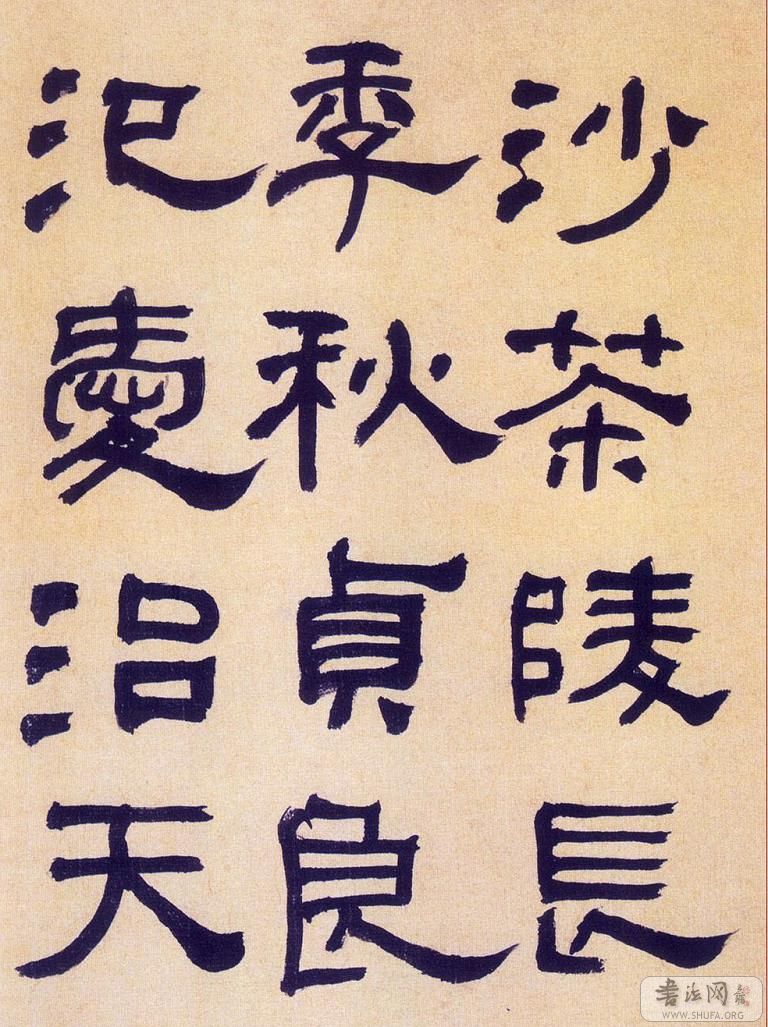 沙茶陵長
季秋貞良
氾愛治天
書法网
WWW.SHUFA.ORG